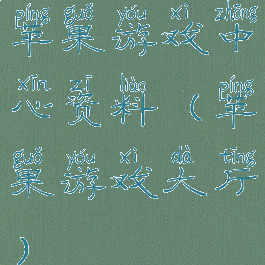 píng guǒ yóu xì zhōng
苹果游戏中
xīn zī liào píng
心资料（苹
guǒ yóu xì dà tīng
果游戏大厅
）